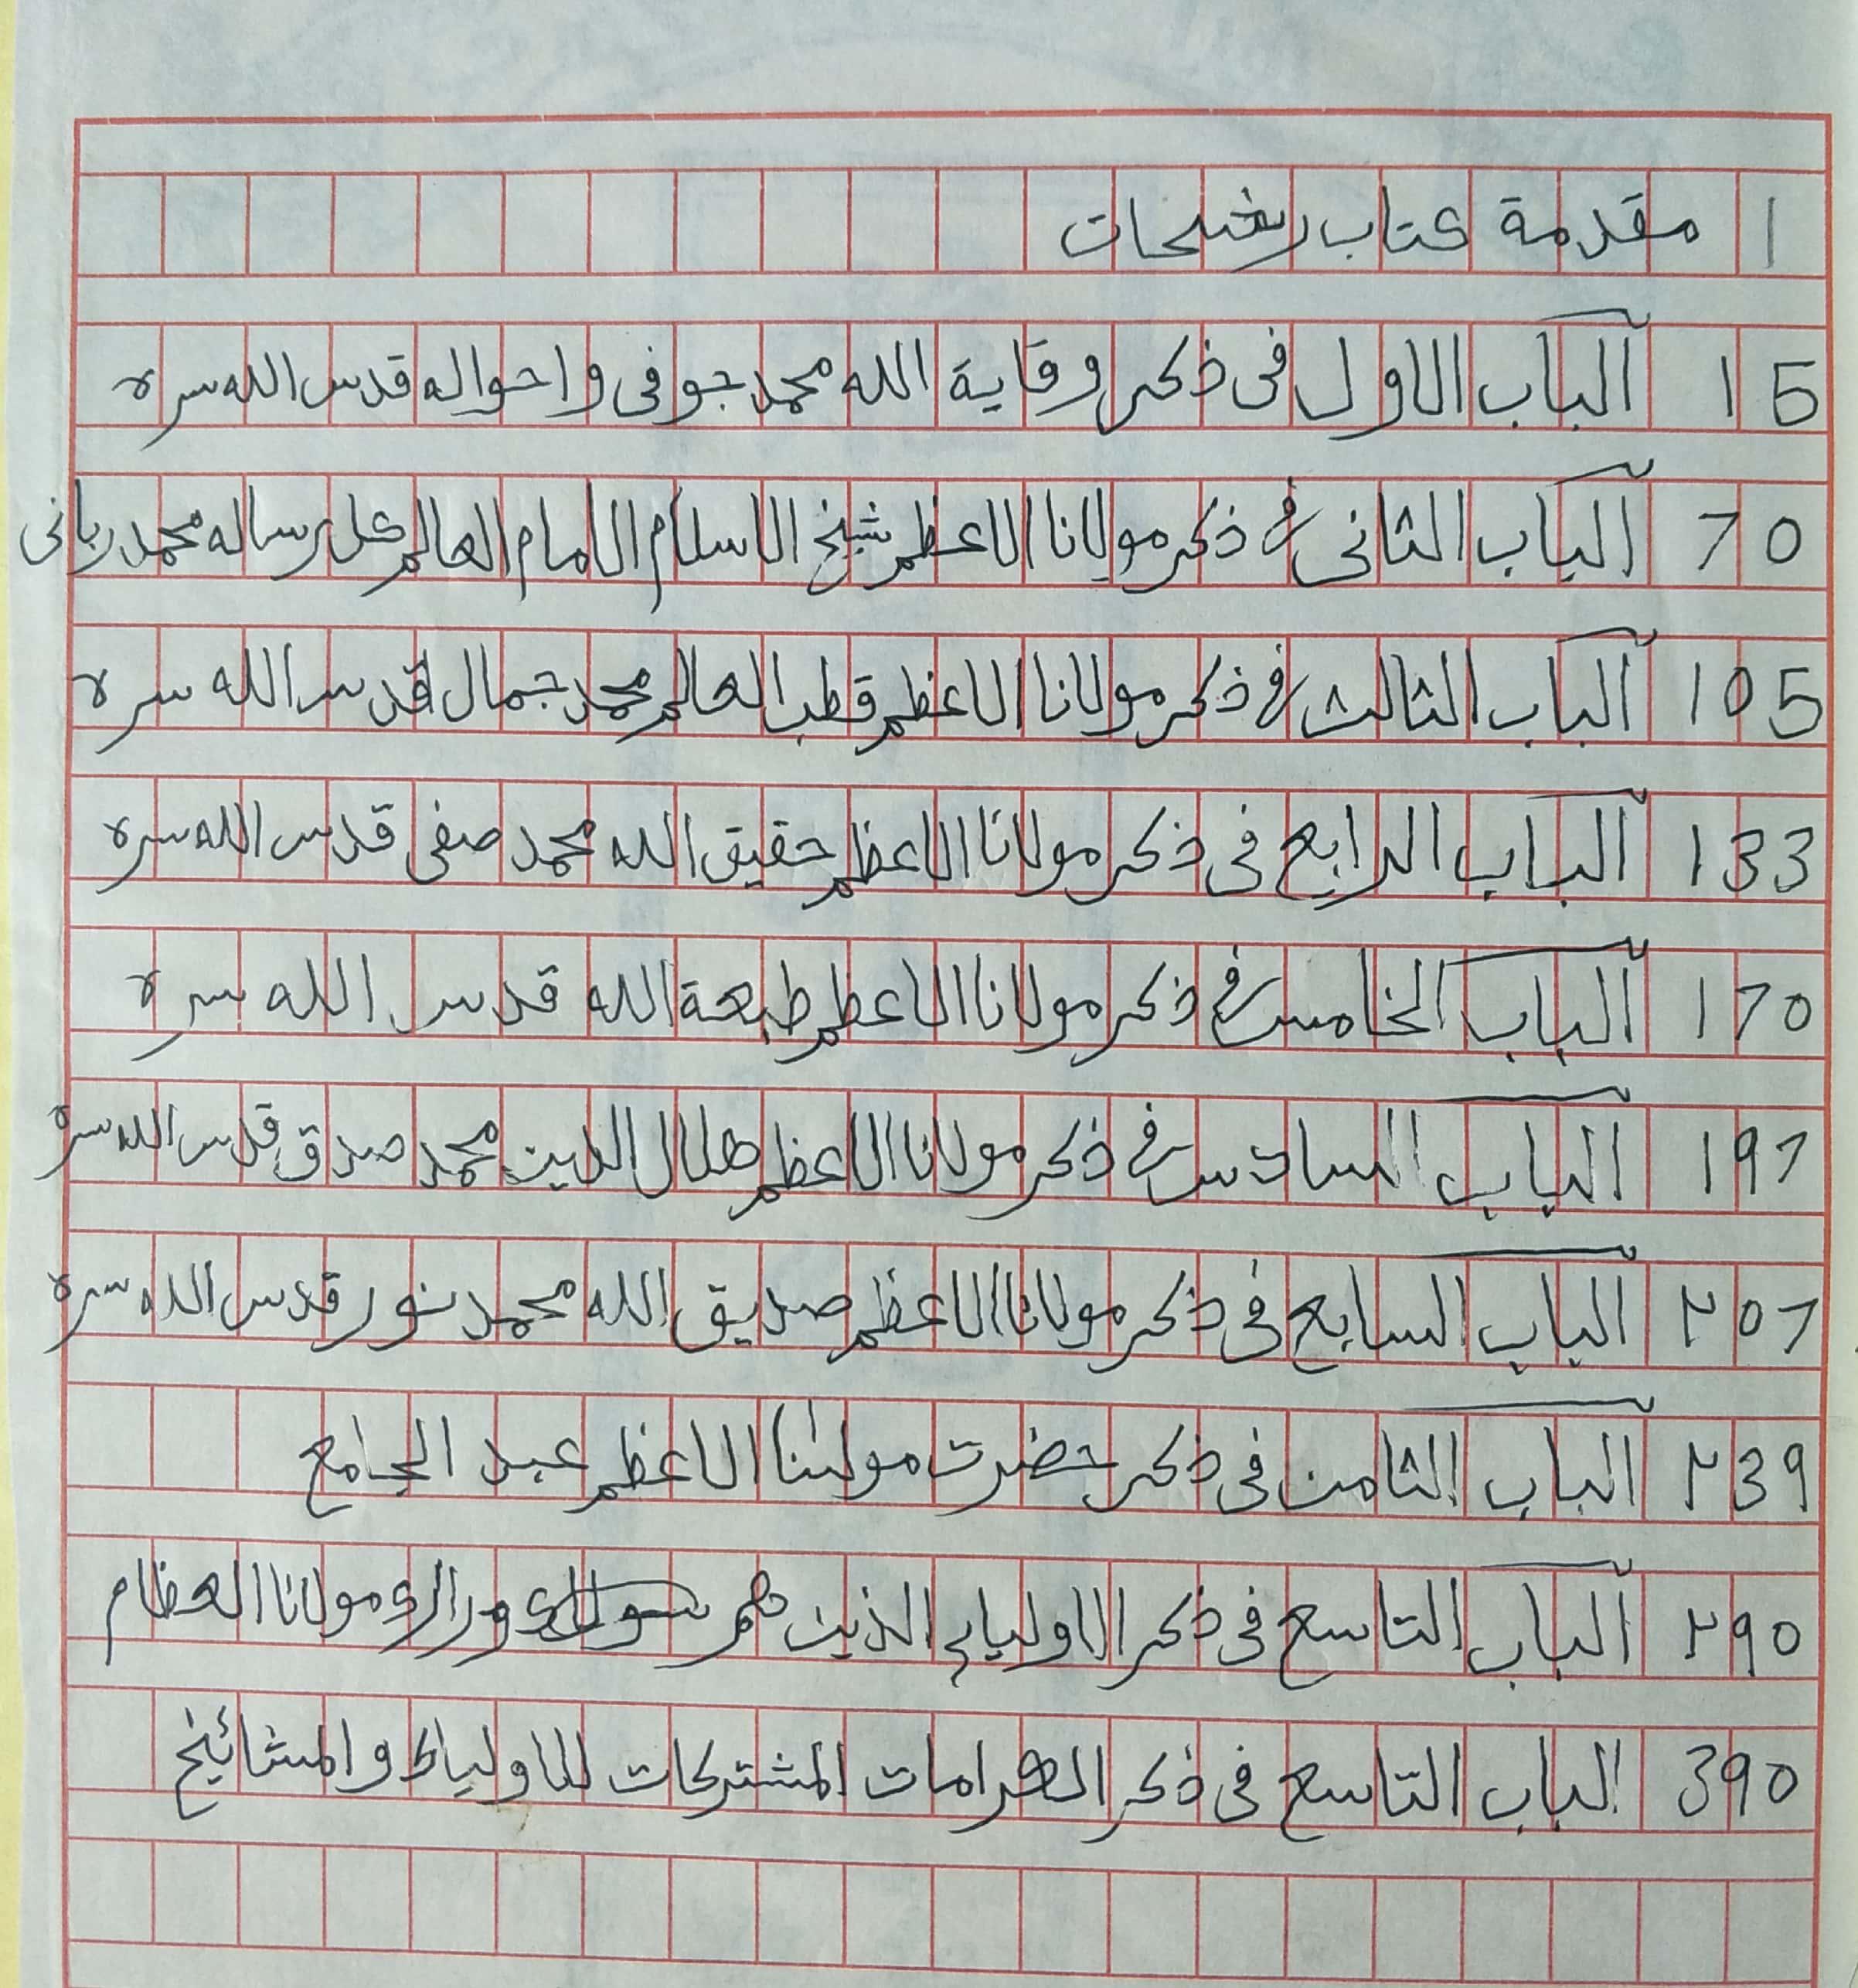 1 مقدمة كتاب رشحات
15 الباب الاول فى ذكر وقاية الله محمد جوفى و احواله قدس الله سره
70 الباب الثانى فى ذكر مولانا الاعظم شيخ الاسلام الامام العالم رساله محمد ربانى
105 الباب الثالث فى ذكر مولانا الاعظم قطب العالم محمد جمال قدس الله سره
133 الباب الرابع فى ذكر مولانا الاعظم حقيق الله محمد صفى قدس الله سره
170 الباب الخامس فى ذكر مولانا الاعظم طبعة الله قدس الله سره
197 الباب السادس فى ذكر مولانا الاعظم هلال الدين محمد صدق قدس الله سره
٢07 الباب السابع فى ذكر مولانا الاعظم صديق الله محمد نور قدس الله سره
٢39 الباب الثامن فى ذكر حضرت مولىٰنا الاعظم عبد الجامع
٢90 الباب التاسع فى ذكر الاولياء الذين هم مولانا العظام
390 الباب التاسع فى ذكر الكرامات المشتركات للاولياء والمشائيخ